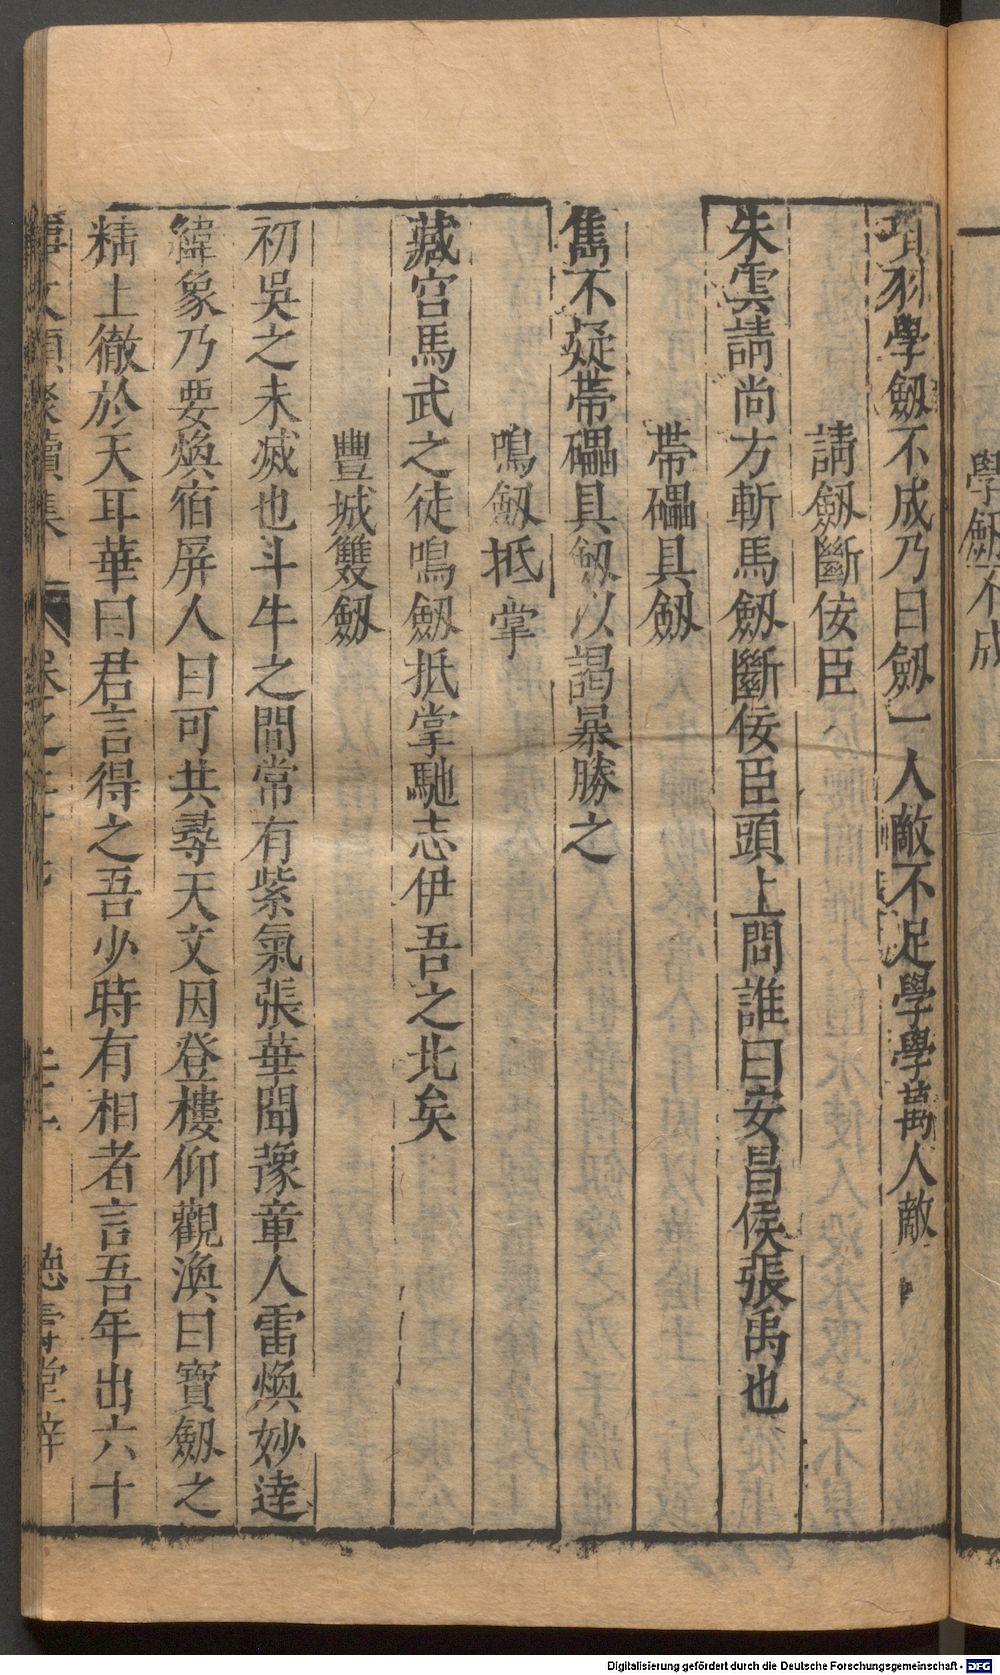 學劔不成
項羽學劔不成乃曰劔一人敵不足學學萬人敵
請劔斷佞臣
朱雲請尚方斬馬劔斷佞臣頭上問誰曰安昌侯張禹也
帶礧具劔
雋不疑帶礧具劔以謁暴勝之
鳴劔抵掌
藏宮馬武之徒鳴劔抵掌馳志伊吾之北矣
豐城雙劔
初吳之未滅也斗牛之間常有紫氣張華聞豫章人雷煥妙達
緯象乃要煥宿屏人曰可共尋天文因登樓仰觀渙曰寶劔之
精上徹於天耳華曰君言得之吾少時有相者言吾年出六十
事文類聚續集 卷之二十 德壽堂梓
Digitalisierung gefördert durch die Deutsche Forschungsgemeinschaft - DFG